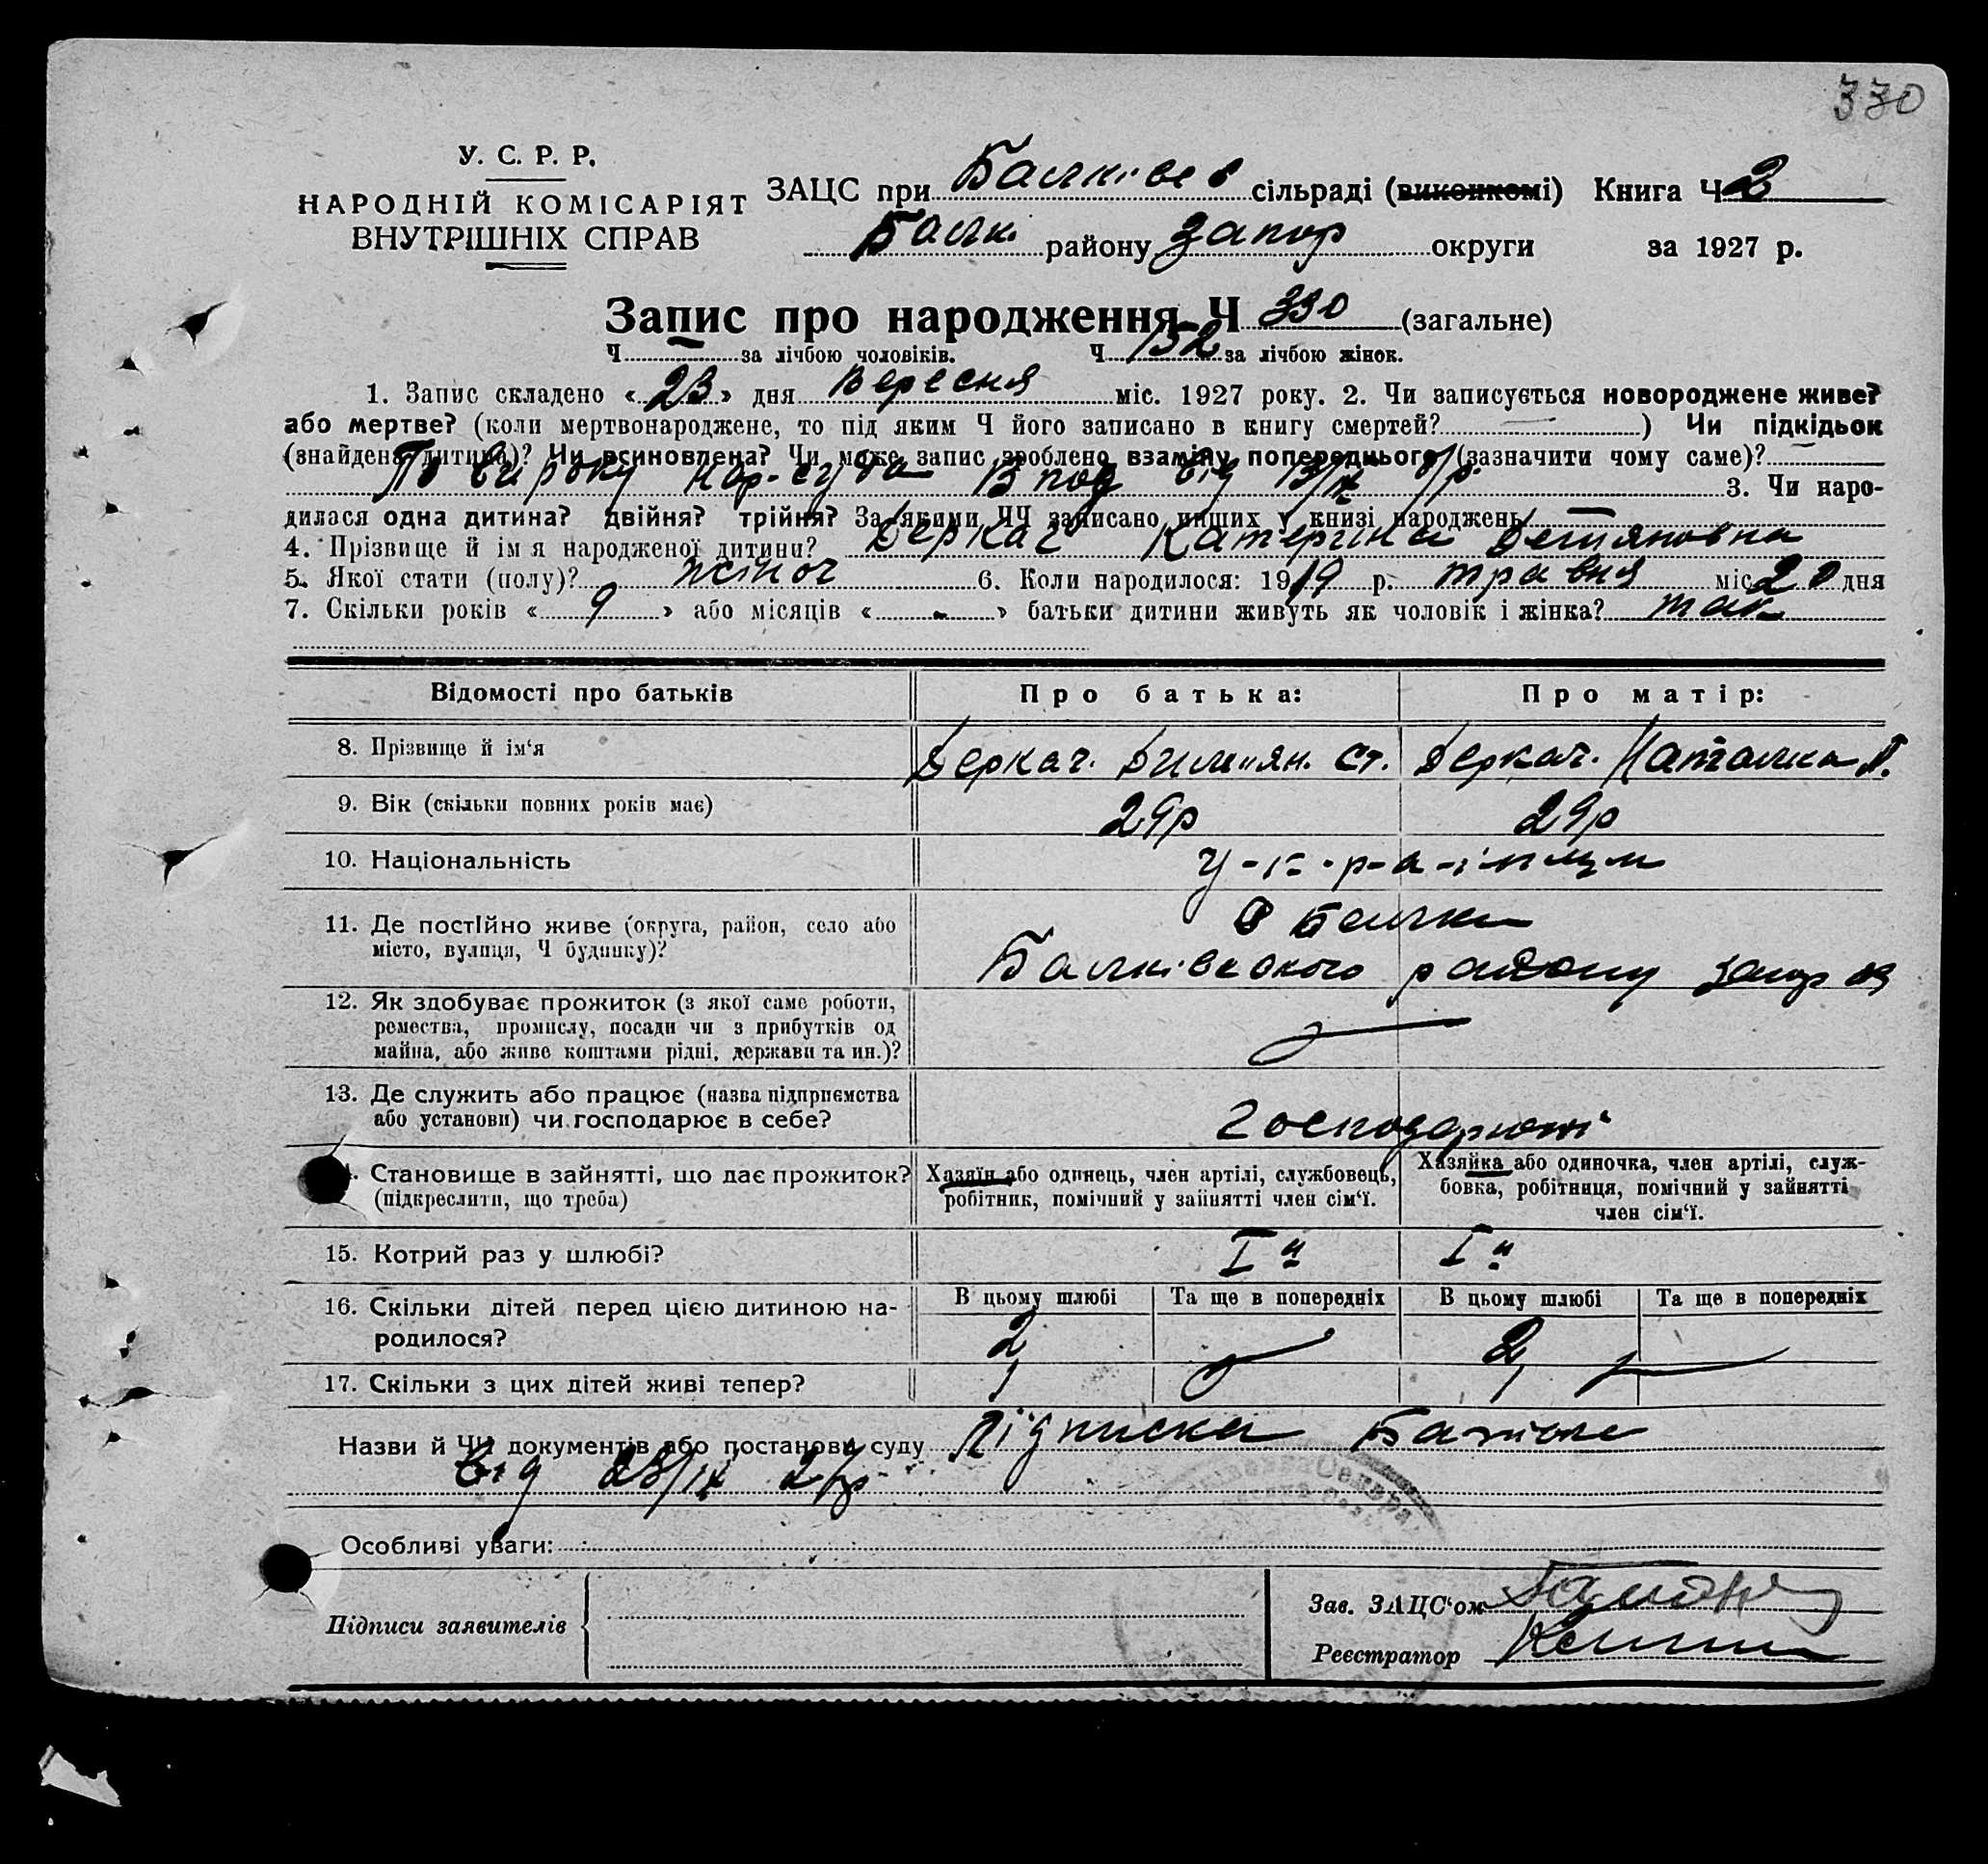 330
У. С. Р. Р.
НАРОДНІЙ КОМІСАРІЯТ
ВНУТРІШНІХ СПРАВ
ЗАЦС при сільраді (виконкомі) Книга Ч 3
Балк. району Запор округи за 1927 р.
Запис про народження Ч 330 (загальне)
Ч — за лічбою чоловіків. Ч 152 за лічбою жінок.
1. Запис складено «23» дня Вересня міс. 1927 року. 2. Чи записується новороджене живе?
або мертве? (коли мертвонароджене, то під яким Ч його записано в книгу смертей? — ) Чи підкідьок
(знайдена дитина)? Чи всиновлена? Чи може запис зроблено взаміну попереднього (зазначити чому саме)? —
По вироку нар-суда від 3. Чи наро-
дилася одна дитина? двійня? трійня? За якими ЧЧ записано инших у книзі народжень —
4. Прізвище й ім я народженої дитини? Деркач Катерина
5. Якої стати (полу)? жіноч 6. Коли народилося: 1919 р. травня міс. 20 дня
7. Скільки років « 9 » або місяців « - » батьки дитини живуть як чоловік і жінка? так
Відомості про батьків Про батька: Про матір:
8. Прізвище й ім‘я Деркач. Ст. Деркач. Наталка П.
9. Вік (скільки повних років має) 29р 29р
10. Національність у-к-р-а-їнци
11. Де постІйно живе (округа, район, село або
місто, вулиця, Ч будинку)? Балки
Балківського району Запор
12. Як здобуває прожиток (з якої саме роботи,
ремества, промислу, посади чи з прибутків од
майна, або живе коштами рідні, держави та ин.)? —
13. Де служить або працює (назва підприємства
або установи) чи господарює в себе? Господарюють
Становище в зайнятті, що дає прожиток?
(підкреслити, що треба)
Хазяїн або одинець, член артілі, службовець,
робітник, помічний у зайнятті член сім‘ї.
Хазяйка або одиночка, член артілі, служ-
бовка, робітниця, помічний у зайнятті
член сім‘ї.
15. Котрий раз у шлюбі? І й І й
16. Скільки дітей перед цією дитиною на-
родилося?
В цьому шлюбі Та ще в попередніх В цьому шлюбі Та ще в попередніх
2 — 2 —
17. Скільки з цих дітей живі тепер? 1 1
Назви й ЧЧ документів або постанови суду Підписка
від 23/ІХ 27р
Особливі уваги:
Підписи заявителів
Зав. ЗАЦС‘ом
Реєстратор